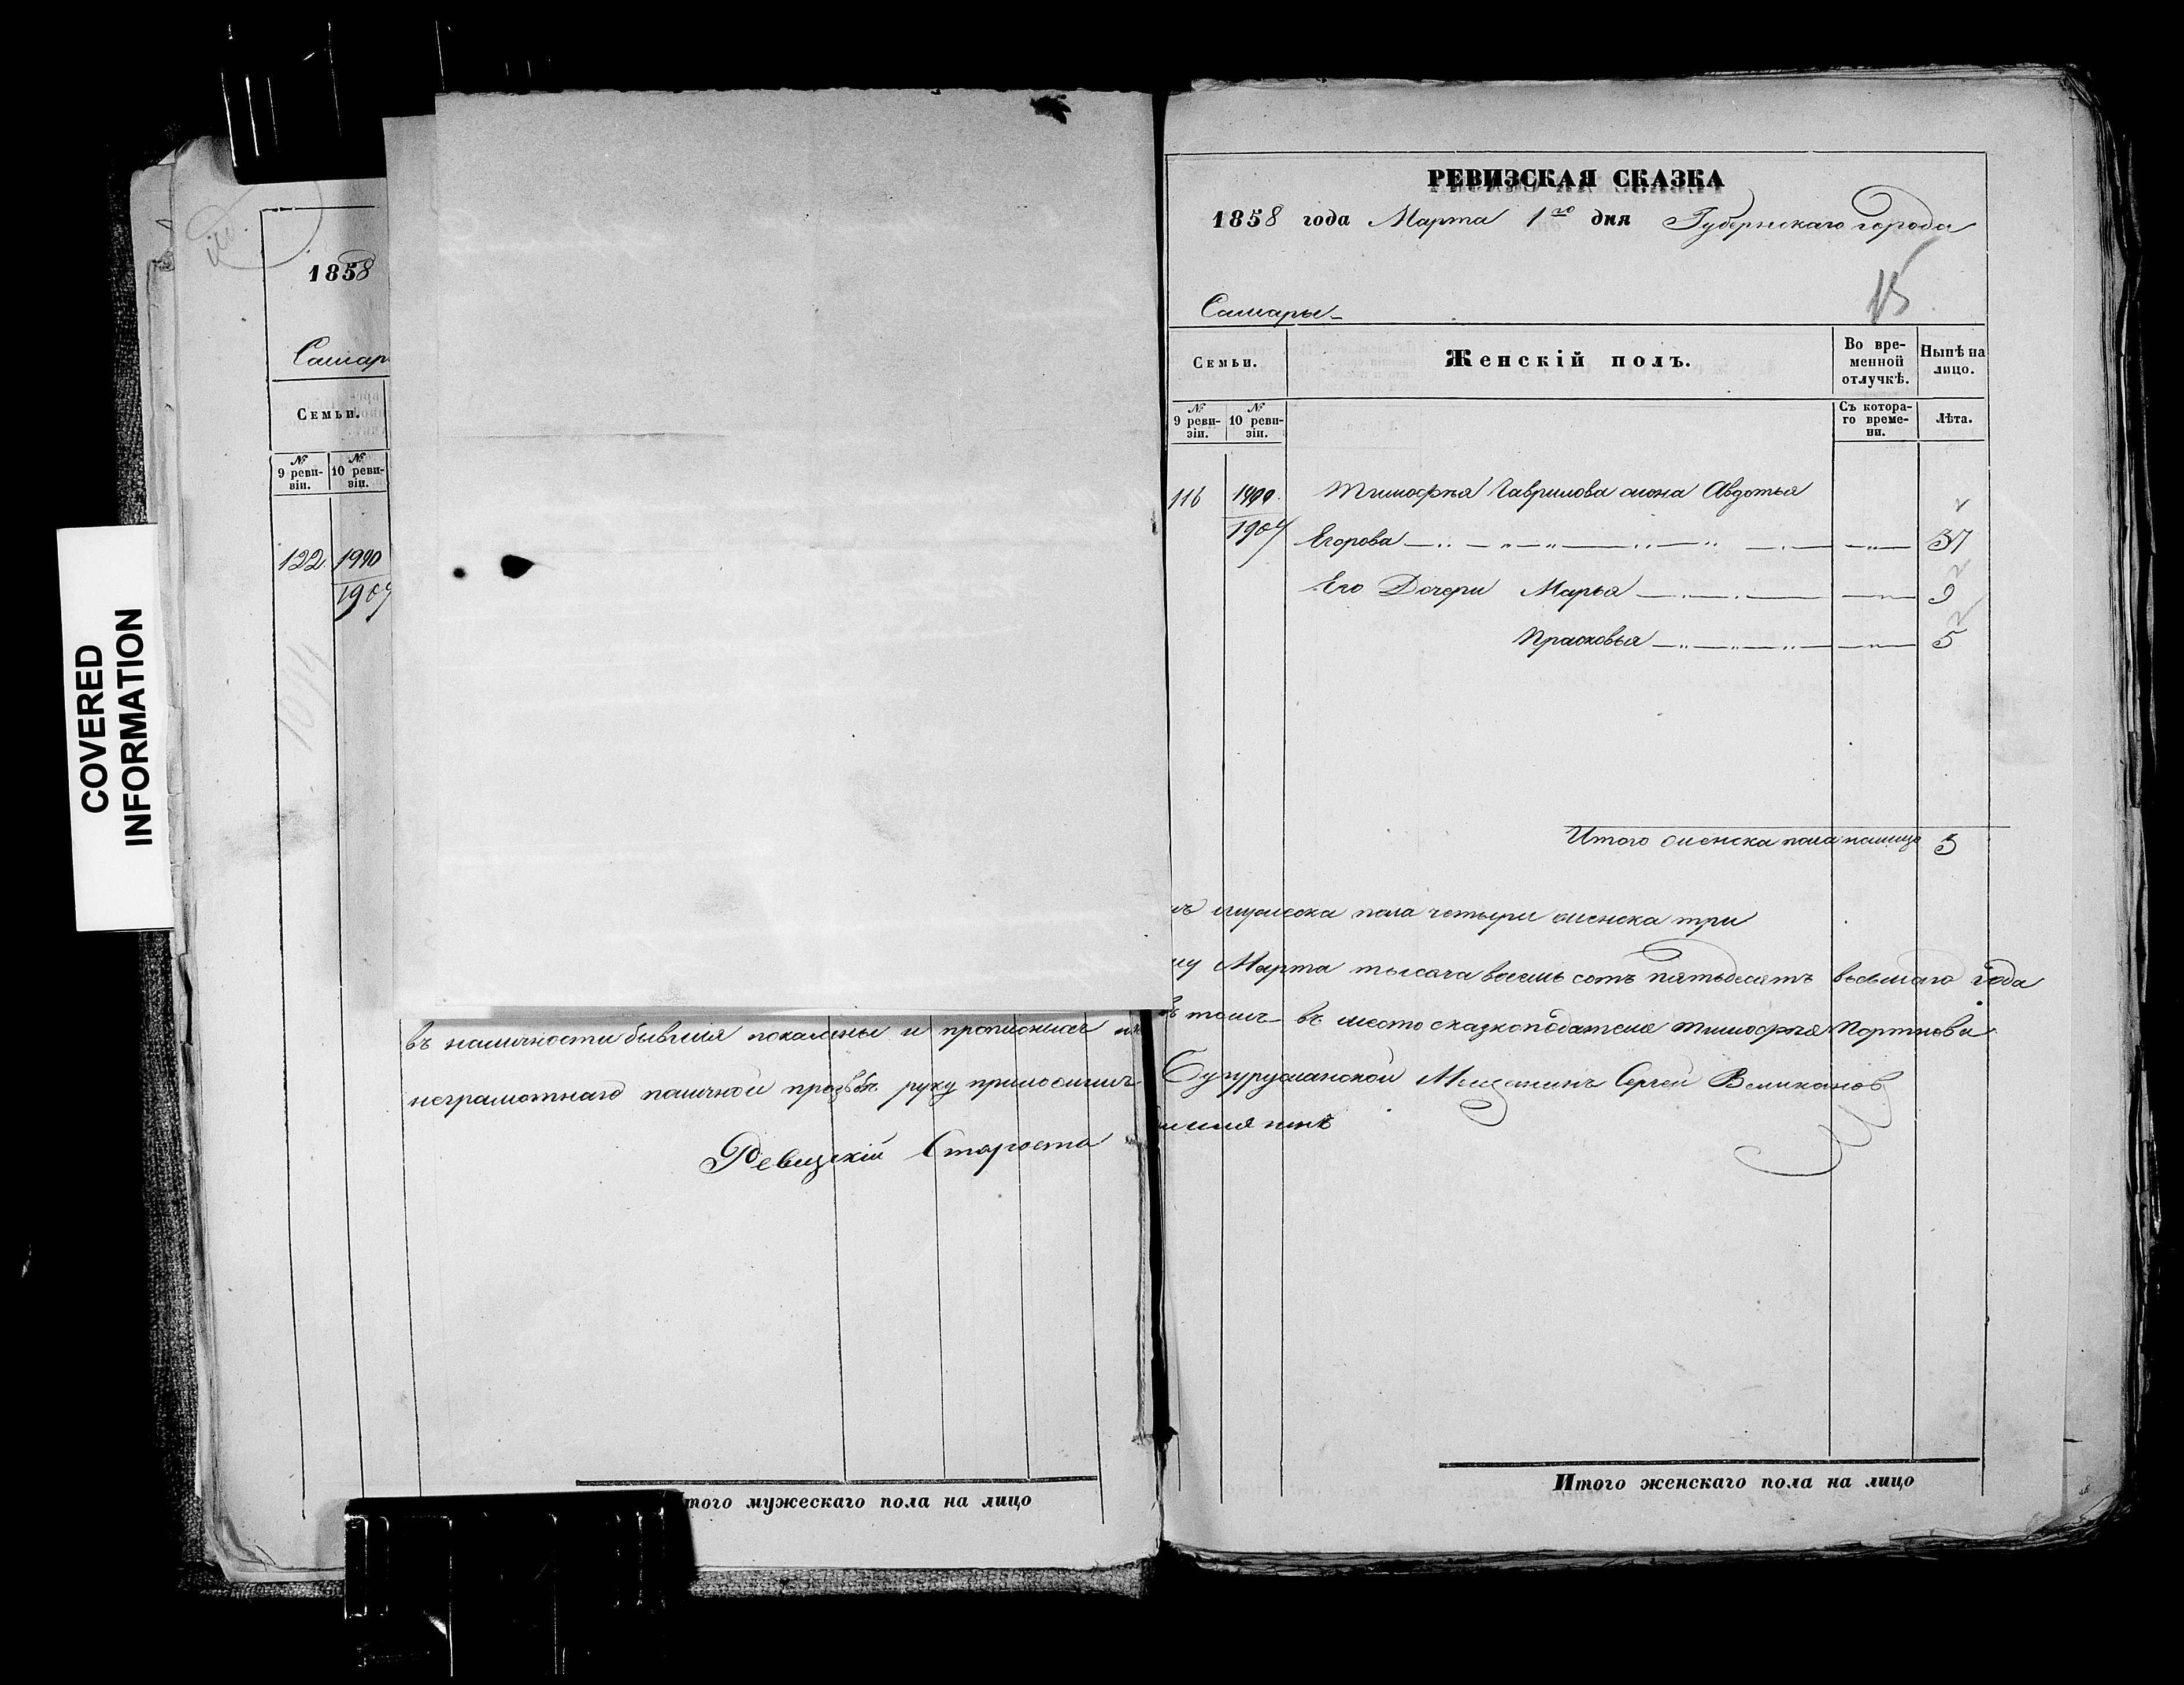 COVERED
INFORMATION
1858
Самар
Семьи.
№ 9 ревизіи. № 10 ревизіи.
122 1990
1909
въ наличности бывшия показаны и прописныхъ
неграмотнаго по личной прозьбѣ руку приложилъ
Ревизскій Староста
того мужескаго пола на лицо
РЕВИЗСКАЯ СКАЗКА
1858 года Марта 1го дня Губернскаго города
15
Самары
Семьи. Женскій полъ. Во временной отлучкѣ. Нынѣ на лицо.
№ 9 ревизіи. № 10 ревизіи. Съ котораго времени. Лѣта.
116 1990 Тимофѣя Гаврилова жена Авдотья
1909 Егорова 37
Его Дочери Марья 9
Прасковья 5
Итого женска пола налицо 3
мужеска пола четыре женска три
Марта тысяча восемь сотъ пятьдесятъ восьмаго года
въ томъ въ место сказкоподателя Тимофѣя Портнова
Бугурусланской Мещанинъ Сергей Великановъ
Итого женскаго пола на лицо